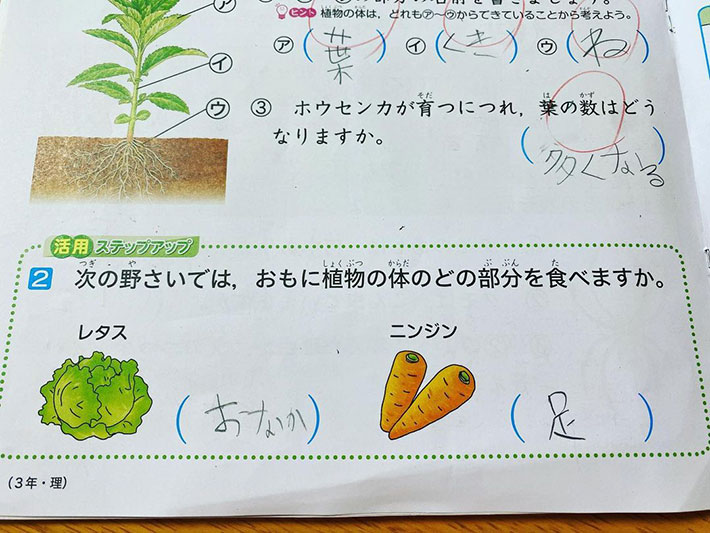 の部分の名前を書きましょう。
ヒント 植物の体は、どれも㋐〜㋒からできていることから考えよう。
㋐(葉) ㋑(くき) ㋒(ね)
㋐
㋑
㋒
③ ホウセンカが育つにつれ,葉の数はどう
なりますか。
(多くなる)
活用 ステップアップ
2 次の野さいでは,おもに植物の体のどの部分を食べますか。
レタス ニンジン
(おなか) (足)
(3年・理)